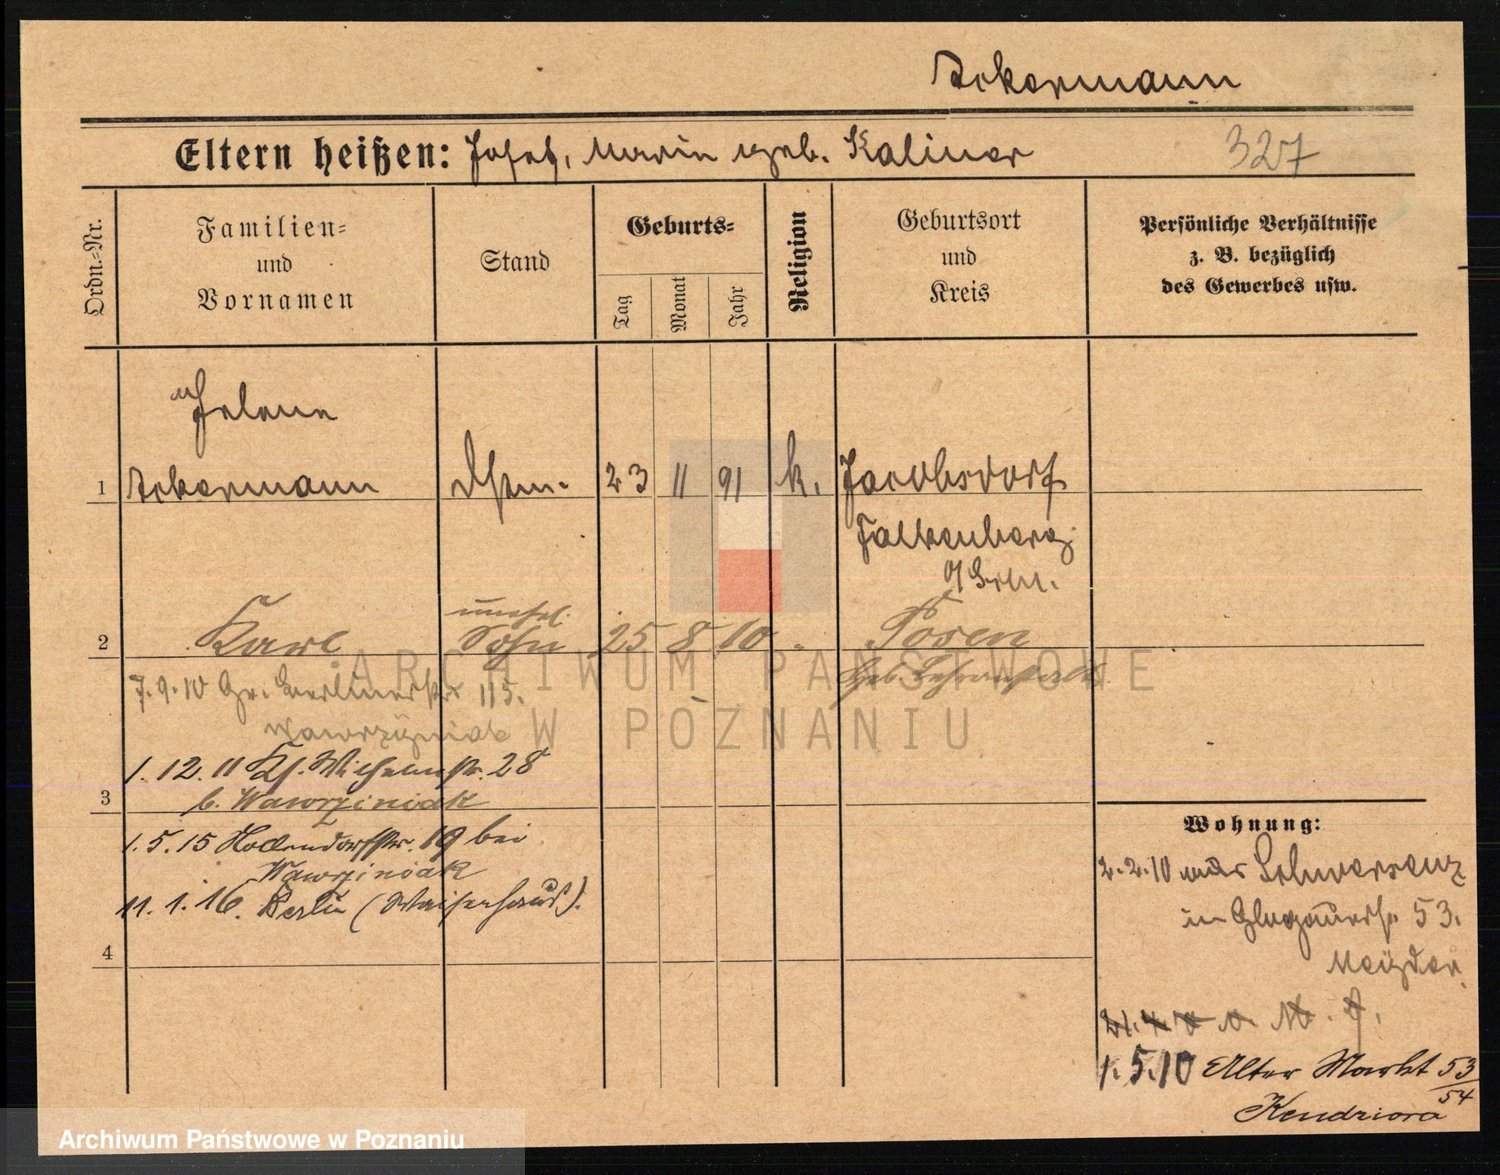 Ackermann
Eltern heißen: Josef, Maria geb. Kaliner
327
Ordn.-Nr.
Familien-
und
Vornamen
Stand
Geburts-
Tag
Monat
Jahr
Religion
Geburtsort
und
Kreis
Persönliche Verhältnisse
z. B. bezüglich
des Gewerbes usw.
Helene
1 Ackermann 23 11 91 k. Jacobsdorf
Falkenberg
2 Karl Sohn 25 8 10 " Posen
7.9.10 Gr. Berlinerstr 115.
Wawrzyniak
1.12.11 Kl. Wilhelmstr. 28
3 b. Wawrziniak
1.5.15 Hohendorffstr. 19 bei
Wawrziniak
11.1.16. Berlin (Waisenhaus).
4
Wohnung:
2.2.10 aus Schwersenz
in Glogauerstr 53.
1.5.10 Alter Markt 53/54
Kendziora
ARCHIWUM PAŃSTWOWE
W POZNANIU
Archiwum Państwowe w Poznaniu